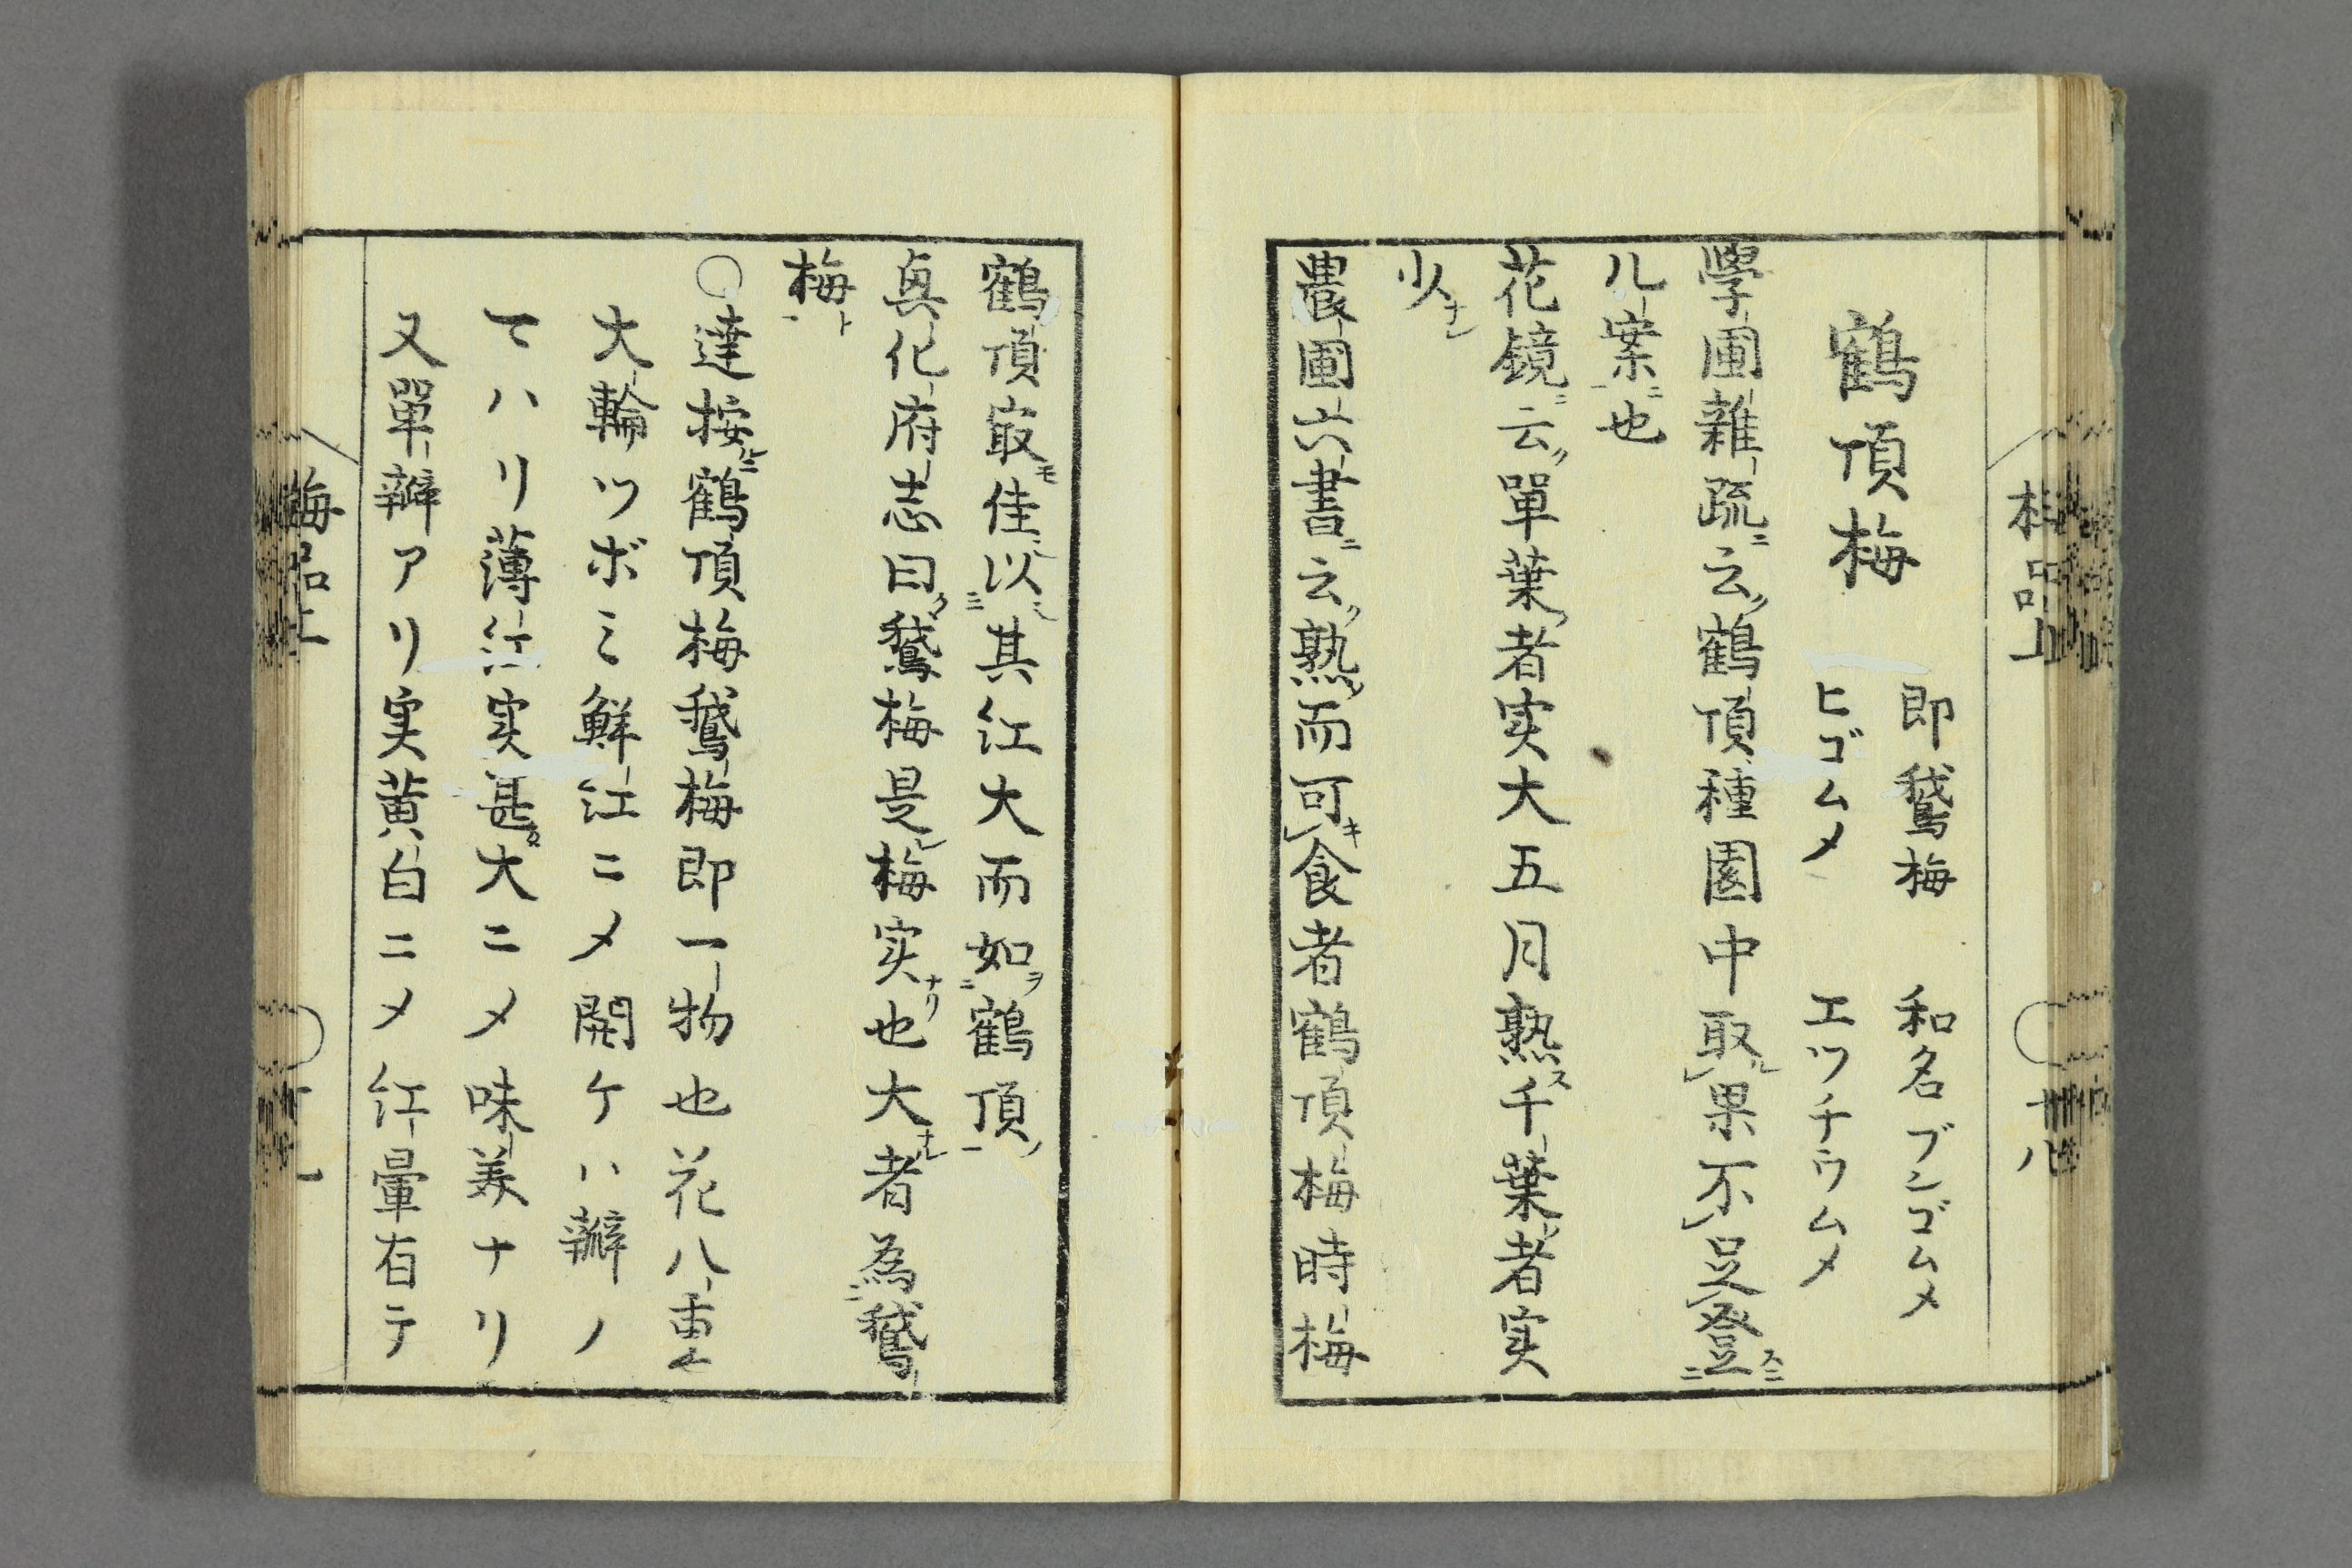 鶴頂梅
即鵞梅 和名ブンゴムメ
ヒゴムメ エツチウムメ
學圃雜疏ニ云ク鶴頂種園中取レ果不レ足レ登スニ
几案ニ一也
花鏡ニ云ク單葉ノ者実大五月熟ス千葉ノ者実
少ナシ
農圃六書ニ云ク熟ノ而可キレ食者鶴頂梅時梅
鶴頂㝡モ佳以其江大而如鶴頂ノ
真化府志曰ク鵞梅是レ梅実ナリ也大ナル者為鵞
梅ト
〇達按ニ鶴頂梅鵞梅即一物也花八重
大輪ツボミ鮮紅ニメ開ケハ瓣ノ
てハリ薄紅実甚タ大ニメ味美ナリ
又單瓣アリ実黄白ニメ紅暈有テ
梅品上